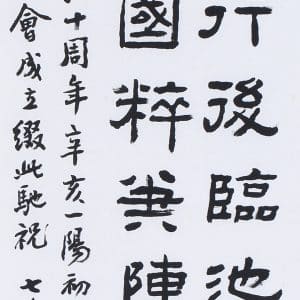 行後臨池
國粹兼陳
十周年辛亥一陽初
會成立綴此馳祝 七